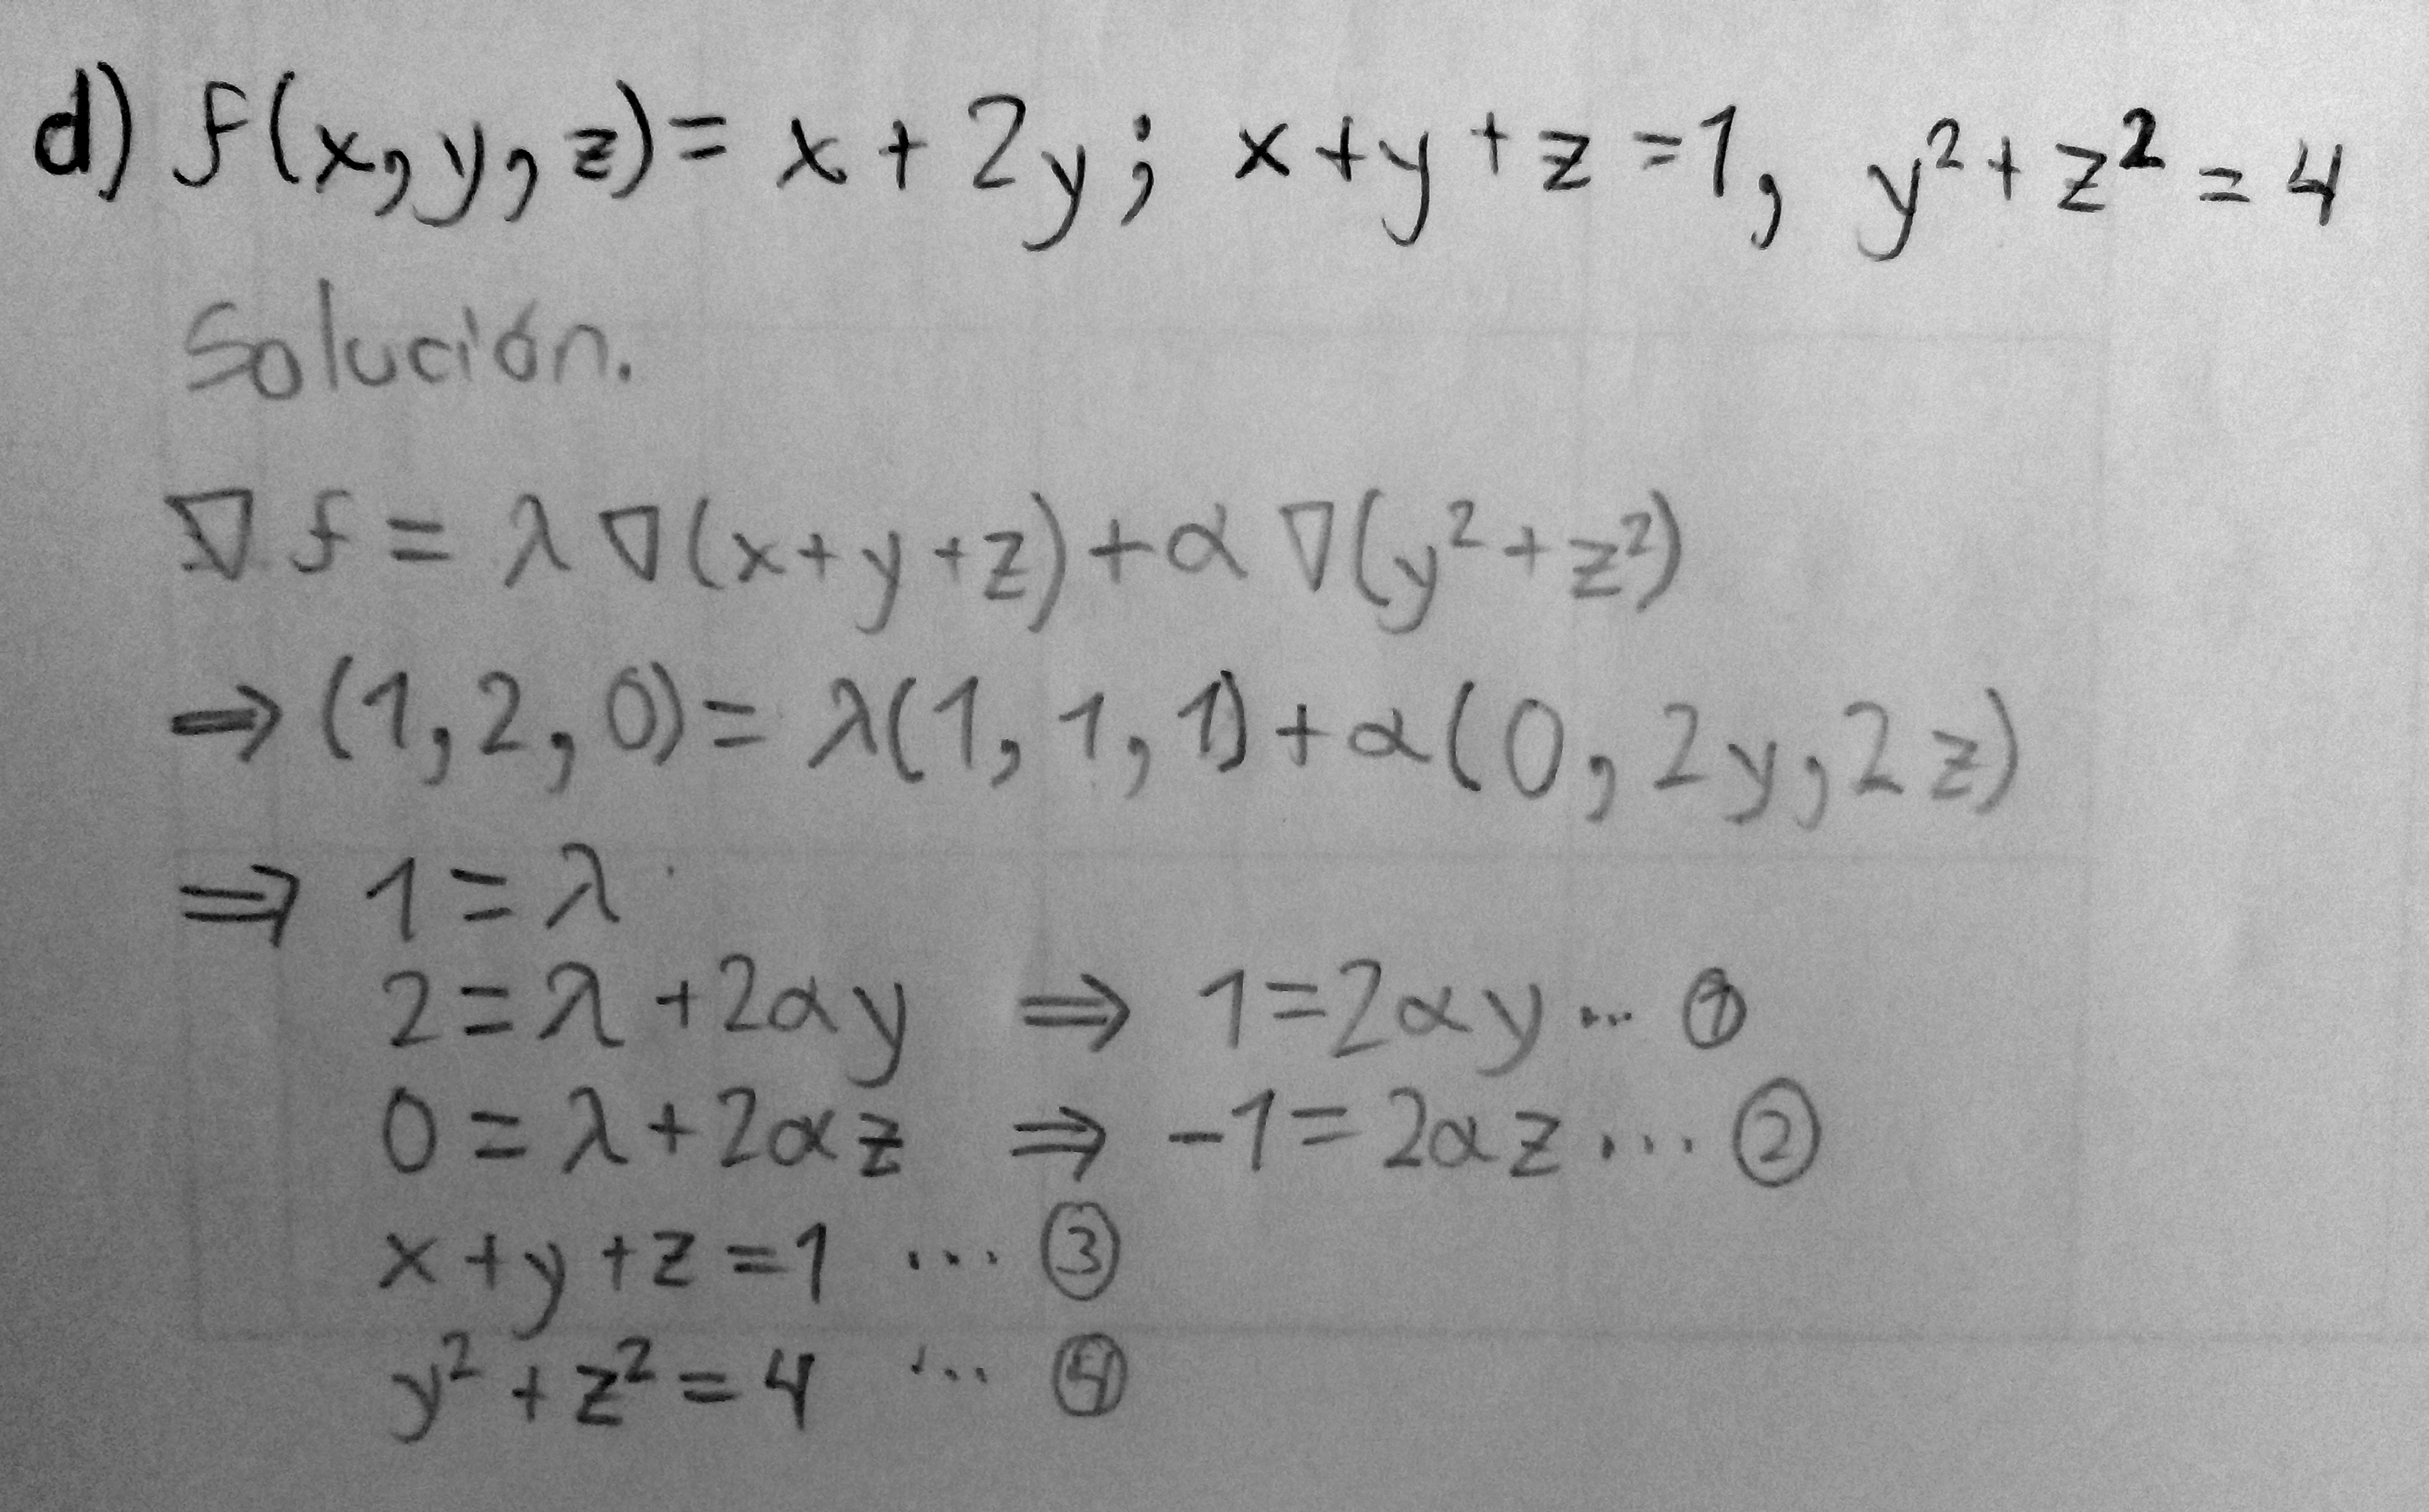 d) f(x, y, z) = x + 2y; x + y + z = 1, y² + z² = 4
Solución.
∇f = λ∇(x + y + z) + α∇(y² + z²)
⇒ (1, 2, 0) = λ(1, 1, 1) + α(0, 2y, 2z)
⇒ 1 = λ
2 = λ + 2αy ⇒ 1 = 2αy ... ①
0 = λ + 2αz ⇒ -1 = 2αz ... ②
x + y + z = 1 ... ③
y² + z² = 4 ... ④